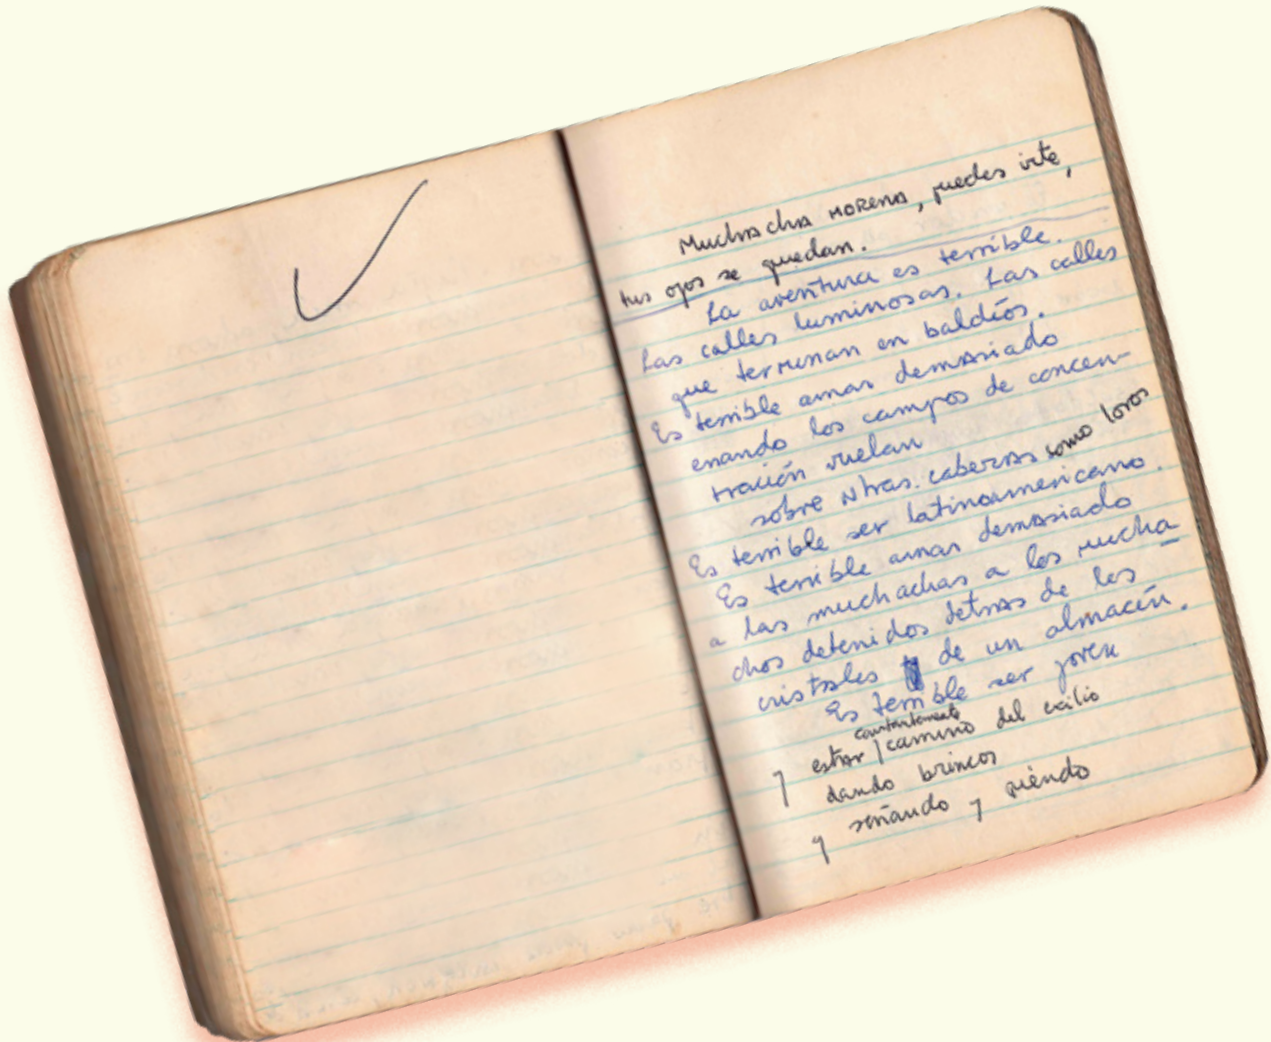 Muchacha morena, puedes irte,
tus ojos se quedan.
La aventura es terrible.
Las calles luminosas. Las calles
que terminan en baldíos.
Es terrible amar demasiado
cuando los campos de concen-
tración vuelan
sobre ntras. cabezas como loros
Es terrible ser latinoamericano.
Es terrible amar demasiado
a las muchachas a los mucha
chos detenidos detras de los
cristales de un almacén.
Es terrible ser joven
constantemente
y estar camino del exilio
dando brincos
y soñando y riendo